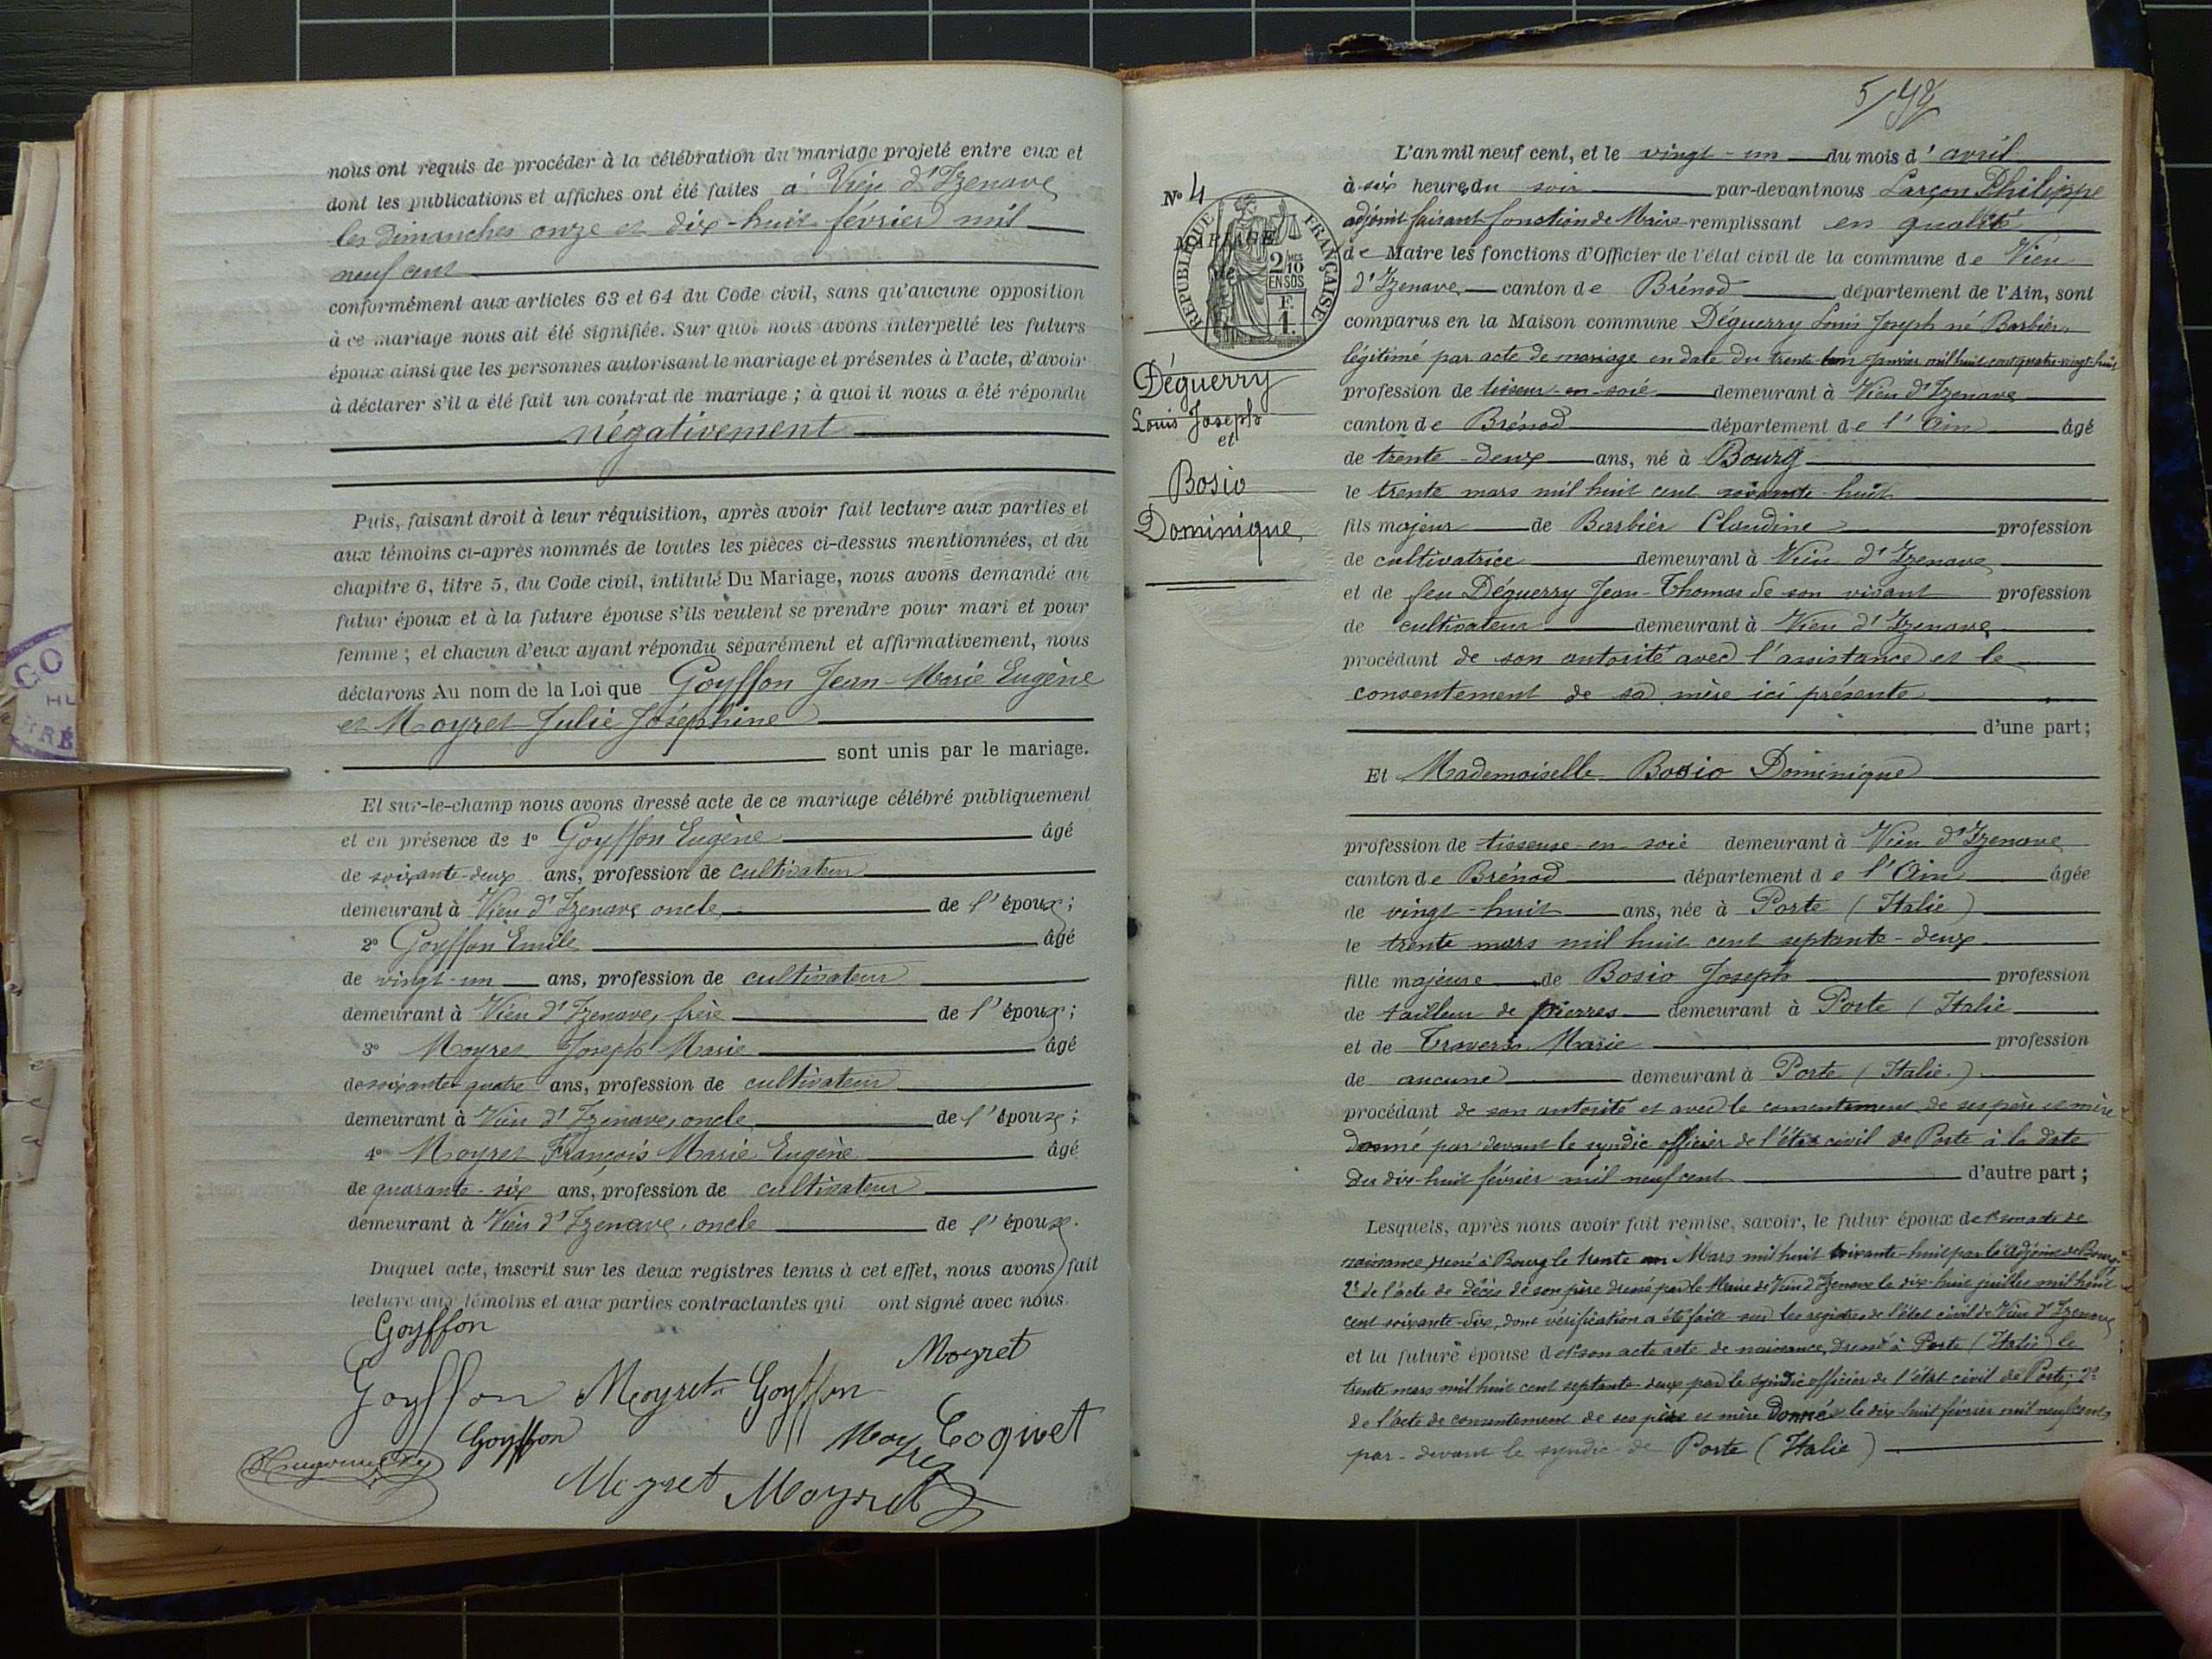 nous ont requis de procéder à la célébration du mariage projeté entre eux et
dont les publications et affiches ont été faites à Vieu d'Izenave
les Dimanches onze et dix-huit février mil
neuf cent
conformément aux articles 63 et 64 du Code civil, sans qu'aucune opposition
à ce mariage nous ait été signifiée. Sur quoi nous avons interpellé les futurs
époux ainsi que les personnes autorisant le mariage et présentes à l'acte, d'avoir
à déclarer s'il a été fait un contrat de mariage ; à quoi il nous a été répondu
négativement
Puis, faisant droit à leur réquisition, après avoir fait lecture aux parties et
aux témoins ci-après nommés de toutes les pièces ci-dessus mentionnées, et du
chapitre 6, titre 5, du Code civil, intitulé Du Mariage, nous avons demandé au
futur époux et à la future épouse s'ils veulent se prendre pour mari et pour
femme ; et chacun d'eux ayant répondu séparément et affirmativement, nous
déclarons Au nom de la Loi que Goyffon Jean-Marie Eugène
et Moyret Julie Joséphine
sont unis par le mariage.
Et sur-le-champ nous avons dressé acte de ce mariage célébré publiquement
et en présence de 1º Goyffon Eugène âgé
de soixante-deux ans, profession de cultivateur
demeurant à Vieu d'Izenave oncle, de l'époux ;
2º Goyffon Emile âgé
de vingt-un ans, profession de cultivateur
demeurant à Vieu d'Izenave, frère de l'époux ;
3º Moyret Joseph Marie âgé
de soixante-quatre ans, profession de cultivateur
demeurant à Vieu d'Izenave, oncle de l'épouse ;
4º Moyret François Marie Eugène âgé
de quarante-six ans, profession de cultivateur
demeurant à Vieu d'Izenave, oncle de l'épouse.
Duquel acte, inscrit sur les deux registres tenus à cet effet, nous avons fait
lecture aux témoins et aux parties contractantes qui ont signé avec nous.
Goyffon
Moyret
Goyffon Moyret Goyffon
Goyffon Moyret Coquet
Moyret Moyret
5/42
L'an mil neuf cent, et le vingt-un du mois d'avril
Nº 4
à six heures du soir par-devant nous Larçon Philippe
adjoint faisant fonction de Maire remplissant en qualité
de Maire les fonctions d'Officier de l'état civil de la commune de Vieu
d'Izenave canton de Brénod département de l'Ain, sont
comparus en la Maison commune Déguerry Louis Joseph né Barbier
légitimé par acte de mariage en date du trente-un janvier mil huit cent quatre-vingt-huit
MARIAGE
RÉPUBLIQUE FRANÇAISE
2/10 EN SUS
F. 1.
Déguerry
Louis Joseph
et
Bosio
Dominique
profession de tisseur en soie demeurant à Vieu d'Izenave
canton de Brénod département de l'Ain âgé
de trente-deux ans, né à Bourg
le trente mars mil huit cent soixante-huit
fils majeur de Barbier Claudine profession
de cultivatrice demeurant à Vieu d'Izenave
et de feu Déguerry Jean-Thomas de son vivant profession
de cultivateur demeurant à Vieu d'Izenave
procédant de son autorité avec l'assistance et le
consentement de sa mère ici présente
d'une part ;
Et Mademoiselle Bosio Dominique
profession de tisseuse en soie demeurant à Vieu d'Izenave
canton de Brénod département de l'Ain âgée
de vingt-huit ans, née à Porte (Italie)
le trente mars mil huit cent septante-deux
fille majeure de Bosio Joseph profession
de tailleur de pierres demeurant à Porte (Italie
et de Travers Marie profession
de aucune demeurant à Porte (Italie)
procédant de son autorité et avec le consentement de ses père et mère
donné par devant le syndic officier de l'état civil de Porte à la date
du dix-huit février mil neuf cent d'autre part ;
Lesquels, après nous avoir fait remise, savoir, le futur époux de 1º son acte de
naissance dressé à Bourg le trente Mars mil huit soixante-huit par le adjoint de Bourg
2º de l'acte de décès de son père dressé par le Maire de Vieu d'Izenave le dix-huit juillet mil huit
cent soixante-dix, dont vérification a été faite sur les registres de l'état civil de Vieu d'Izenave
et la future épouse de 1º son acte acte de naissance dressé à Porte (Italie) le
trente mars mil huit cent septante-deux par le syndic officier de l'état civil de Porte ; 2º
de l'acte de consentement de ses père et mère donné le dix-huit février mil neuf cent
par-devant le syndic de Porte (Italie)